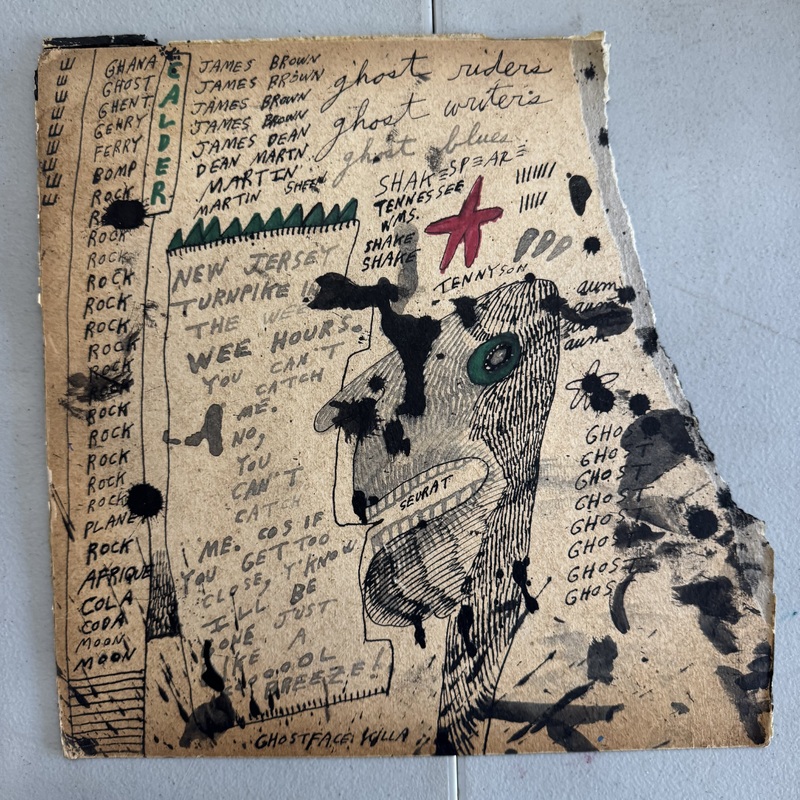 EEEEEEEEE
GHANA
GHOST
GHENT
GEHRY
FERRY
BOMP
ROCK
ROCK
ROCK
ROCK
ROCK
ROCK
ROCK
ROCK
ROCK
ROCK
ROCK
ROCK
ROCK
ROCK
PLANET
ROCK
AFRIQUE
COLA
CODA
MOON
MOON
CALDER
JAMES BROWN
JAMES BROWN
JAMES BROWN
JAMES BROWN
JAMES DEAN
DEAN MARTN
MARTIN
MARTIN SHEEN
ghost riders
ghost writers
ghost blues
SHAKESPEARE
TENNESSEE
WMS.
SHAKE
SHAKE
TENNYSON
NEW JERSEY
TURNPIKE IN
THE WEE
WEE HOURS.
YOU CAN'T
CATCH
ME.
NO,
YOU
CAN'T
CATCH
ME. COS IF
YOU GET TOO
CLOSE, Y'KNOW
I'LL BE
GONE JUST
LIKE A
COOOL
BREEZE!
SEURAT
aum
aum
aum
aum
GHOST
GHOST
GHOST
GHOST
GHOST
GHOST
GHOST
GHOS
GHOSTFACE KILLA